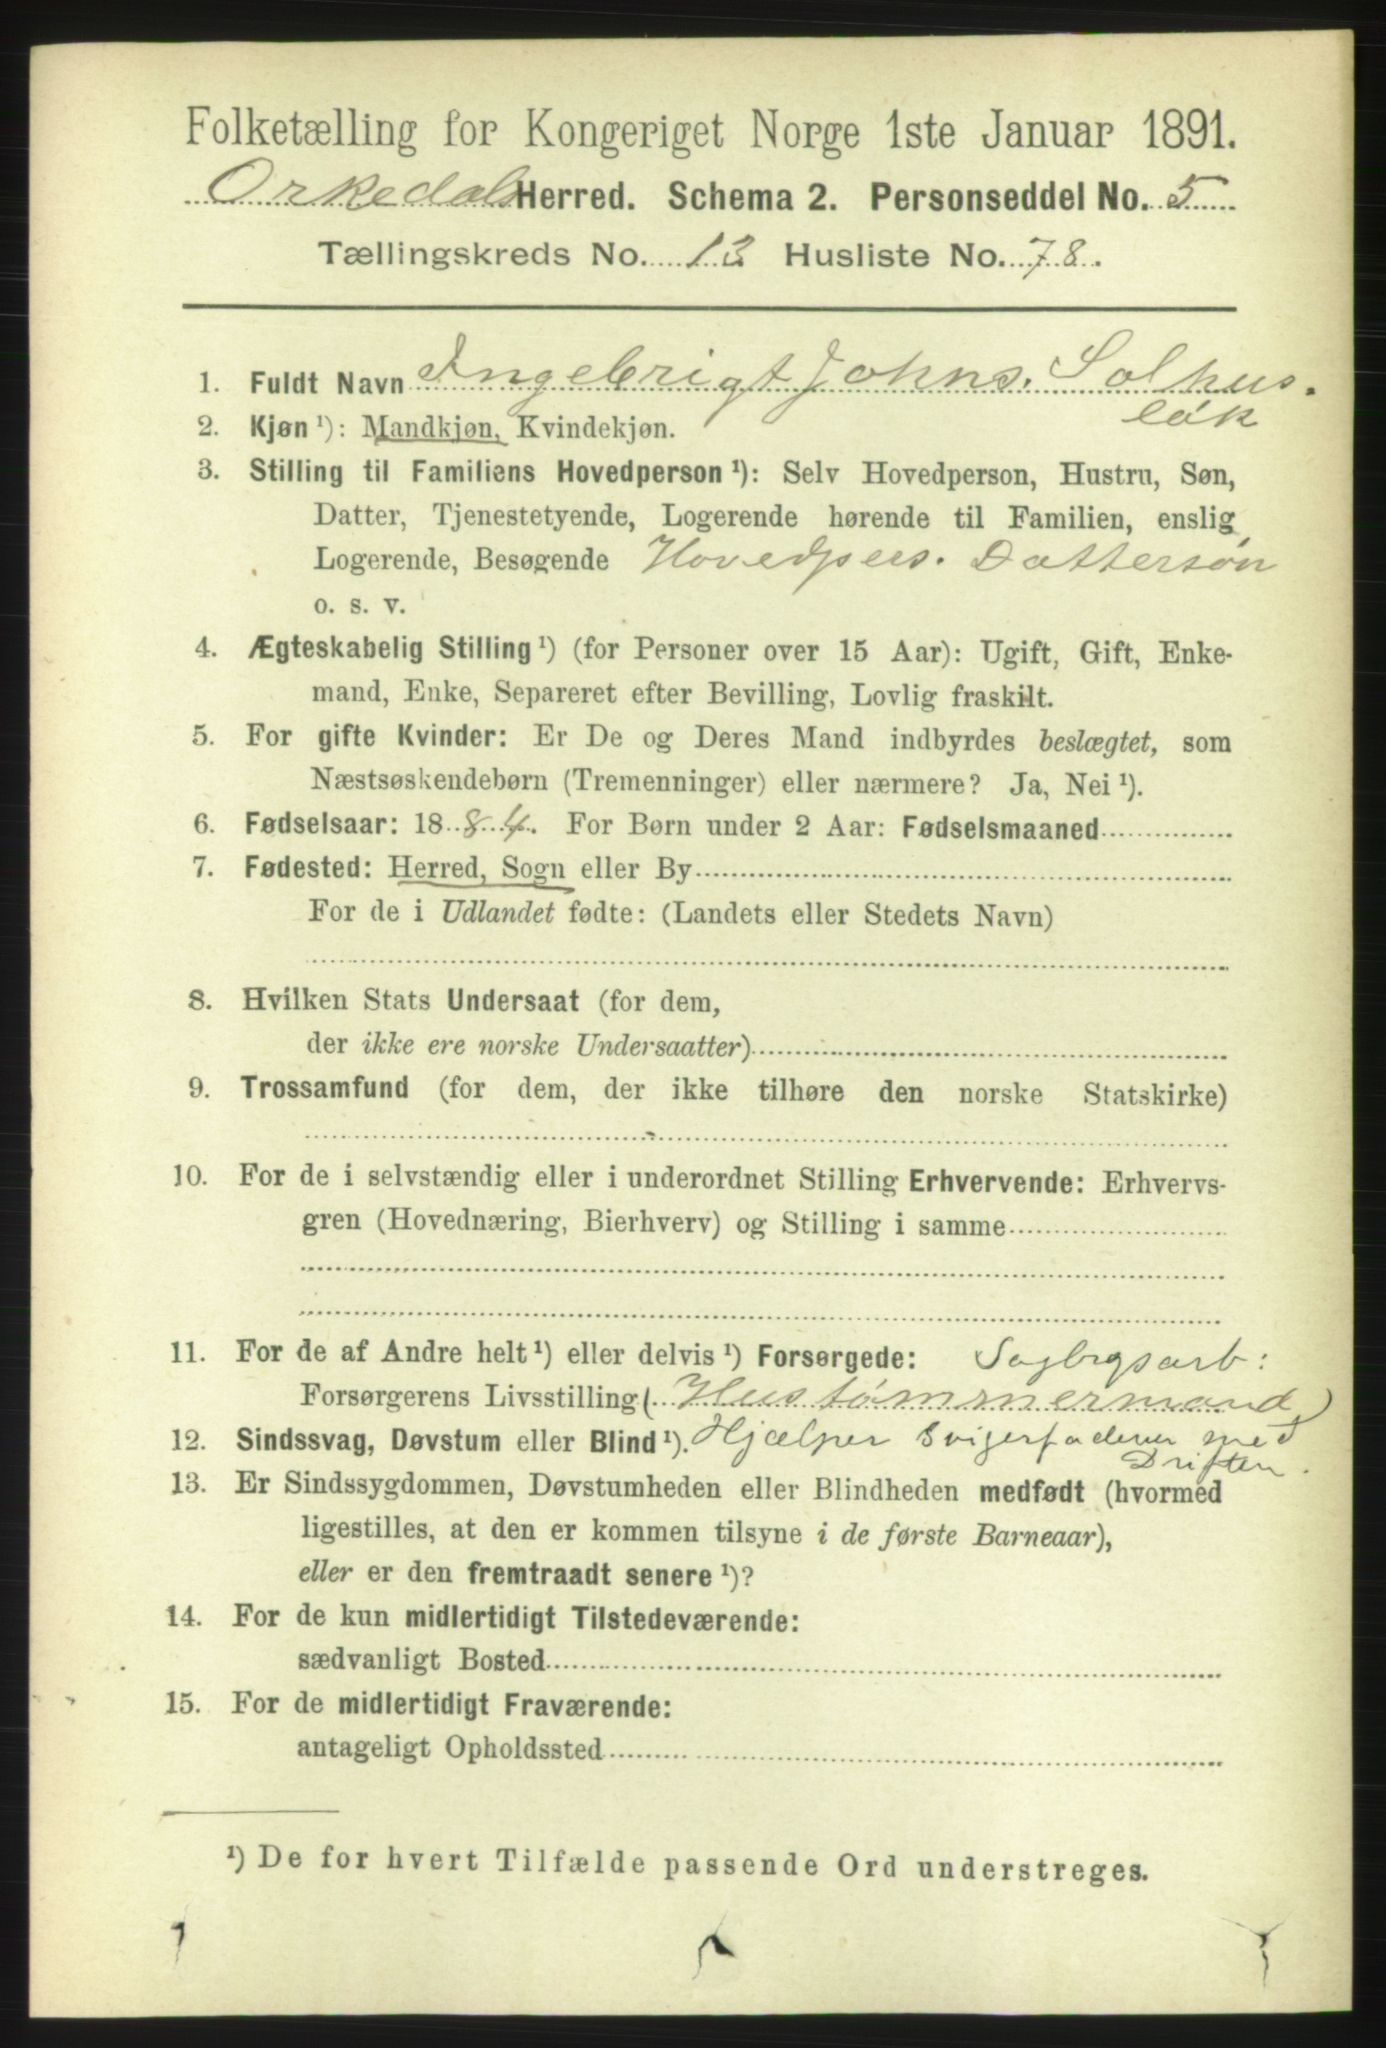 Folketælling for Kongeriget Norge 1ste Januar 1891.
Orkedals Herred. Schema 2. Personseddel No. 5
Tællingskreds No. 13 Husliste No. 78.
1. Fuldt Navn Ingebrigt Johns. Solhus.
løk
2. Kjøn ¹): Mandkjøn, Kvindekjøn.
3. Stilling til Familiens Hovedperson ¹): Selv Hovedperson, Hustru, Søn,
Datter, Tjenestetyende, Logerende hørende til Familien, enslig
Logerende, Besøgende Hovedpers. Dattersøn
o. s. v.
4. Ægteskabelig Stilling ¹) (for Personer over 15 Aar): Ugift, Gift, Enke-
mand, Enke, Separeret efter Bevilling, Lovlig fraskilt.
5. For gifte Kvinder: Er De og Deres Mand indbyrdes beslægtet, som
Næstsøskendebørn (Tremenninger) eller nærmere? Ja, Nei ¹).
6. Fødselsaar: 1884. For Børn under 2 Aar: Fødselsmaaned
7. Fødested: Herred, Sogn eller By
For de i Udlandet fødte: (Landets eller Stedets Navn)
8. Hvilken Stats Undersaat (for dem,
der ikke ere norske Undersaatter)
9. Trossamfund (for dem, der ikke tilhøre den norske Statskirke)
10. For de i selvstændig eller i underordnet Stilling Erhvervende: Erhvervs-
gren (Hovednæring, Bierhverv) og Stilling i samme
11. For de af Andre helt ¹) eller delvis ¹) Forsørgede: Sagbrgsarb:
Forsørgerens Livsstilling (Hustømmermand)
12. Sindssvag, Døvstum eller Blind ¹). Hjælper Svigerfaderen med
Driften.
13. Er Sindssygdommen, Døvstumheden eller Blindheden medfødt (hvormed
ligestilles, at den er kommen tilsyne i de første Barneaar),
eller er den fremtraadt senere ¹)?
14. For de kun midlertidigt Tilstedeværende:
sædvanligt Bosted
15. For de midlertidigt Fraværende:
antageligt Opholdssted
¹) De for hvert Tilfælde passende Ord understreges.